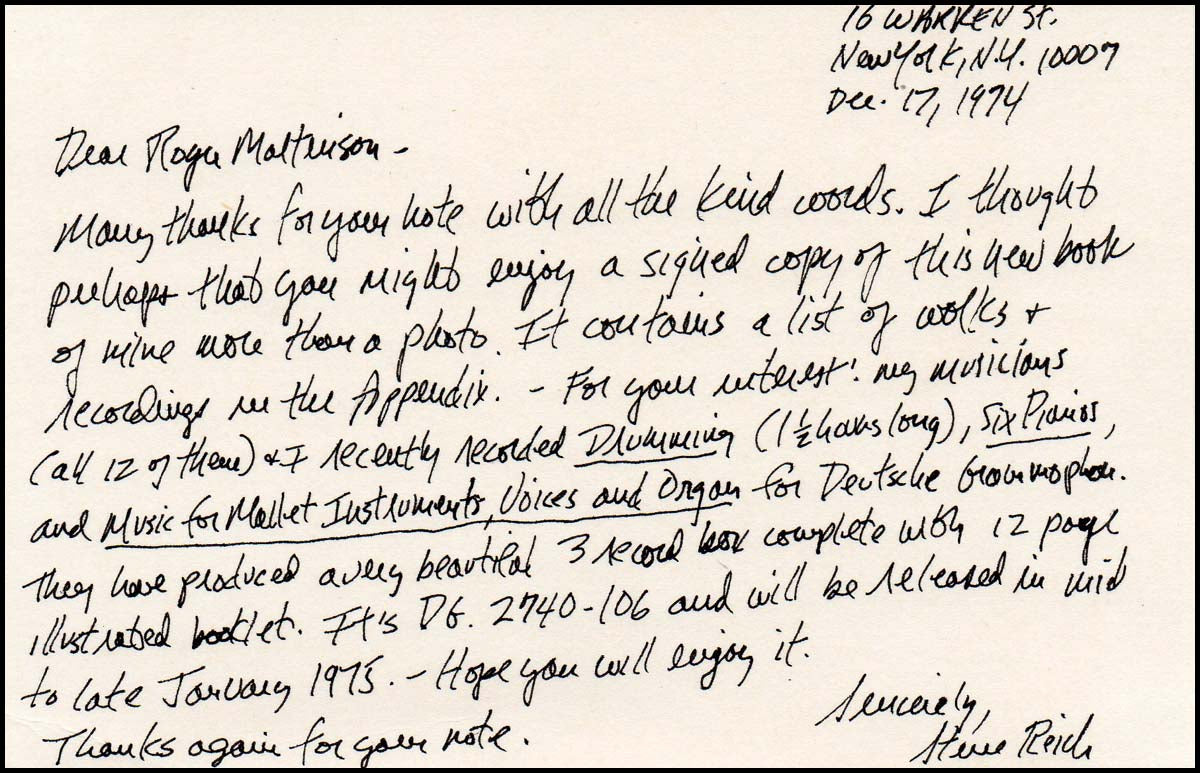 16 WARREN St.
New York, N.Y. 10007
Dec. 17, 1974
Dear Roger Mattinson -
Many thanks for your note with all the kind words. I thought
perhaps that you might enjoy a signed copy of this new book
of mine more than a photo. It contains a list of works +
recordings in the Appendix. - For your interest: my musicians
(all 12 of them) + I recently recorded Drumming (1½ hours long), Six Pianos,
and Music for Mallet Instruments, Voices and Organ for Deutsche Grammophon.
They have produced a very beautiful 3 record box complete with 12 page
illustrated booklet. It's DG. 2740-106 and will be released in mid
to late January 1975. - Hope you will enjoy it.
Thanks again for your note.
Sincerely,
Steve Reich